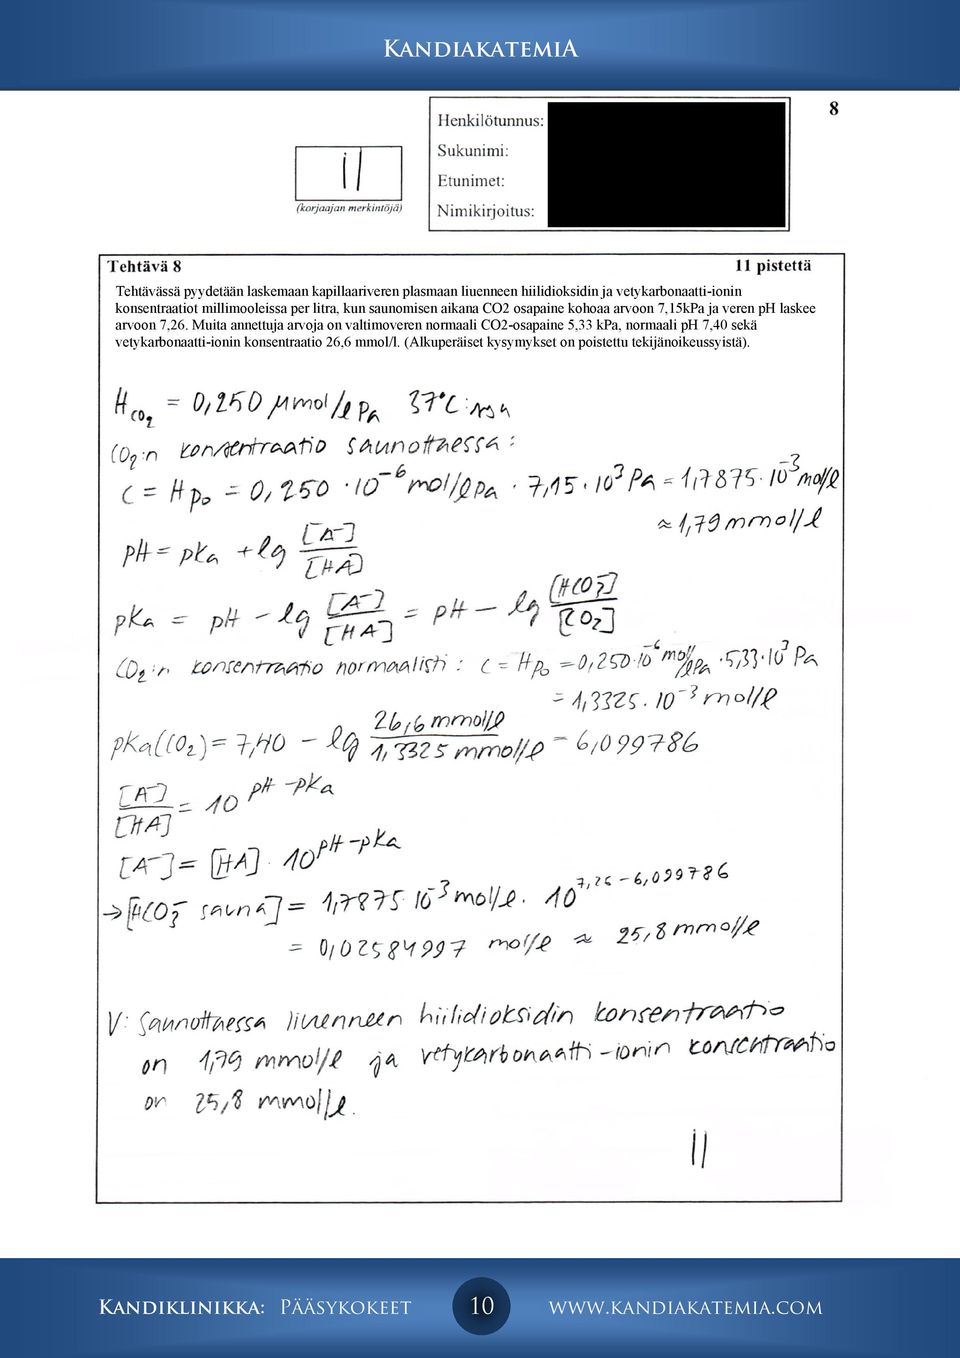 KANDIAKATEMIA
8
Henkilötunnus:
Sukunimi:
Etunimet:
Nimikirjoitus:
11
(korjaajan merkintöjä)
Tehtävä 8 11 pistettä
Tehtävässä pyydetään laskemaan kapillaariveren plasmaan liuenneen hiilidioksidin ja vetykarbonaatti-ionin
konsentraatiot millimooleissa per litra, kun saunomisen aikana CO2 osapaine kohoaa arvoon 7,15kPa ja veren pH laskee
arvoon 7,26. Muita annettuja arvoja on valtimoveren normaali CO2-osapaine 5,33 kPa, normaali pH 7,40 sekä
vetykarbonaatti-ionin konsentraatio 26,6 mmol/l. (Alkuperäiset kysymykset on poistettu tekijänoikeussyistä).
H CO₂ = 0,250 µmol/l Pa 37°C:ssa
CO₂:n konsentraatio saunottaessa:
c = Hp₀ = 0,250 · 10⁻⁶ mol/l Pa · 7,15 · 10³ Pa = 1,7875 · 10⁻³ mol/l
≈ 1,79 mmol/l
pH = pKa + lg [A⁻]/[HA]
pKa = pH - lg [A⁻]/[HA] = pH - lg [HCO₃⁻]/[CO₂]
CO₂:n konsentraatio normaalisti: c = Hp₀ = 0,250 · 10⁻⁶ mol/l Pa · 5,33 · 10³ Pa
= 1,3325 · 10⁻³ mol/l
pKa(CO₂) = 7,40 - lg 26,6 mmol/l / 1,3325 mmol/l = 6,099786
[A⁻]/[HA] = 10^pH-pKa
[A⁻] = [HA] · 10^pH-pKa
→ [HCO₃⁻ sauna] = 1,7875 · 10⁻³ mol/l · 10^7,26-6,099786
= 0,02584997 mol/l ≈ 25,8 mmol/l
V: Saunottaessa liuenneen hiilidioksidin konsentraatio
on 1,79 mmol/l ja vetykarbonaatti-ionin konsentraatio
on 25,8 mmol/l.
11
KANDIKLINIKKA: PÄÄSYKOKEET 10 WWW.KANDIAKATEMIA.COM